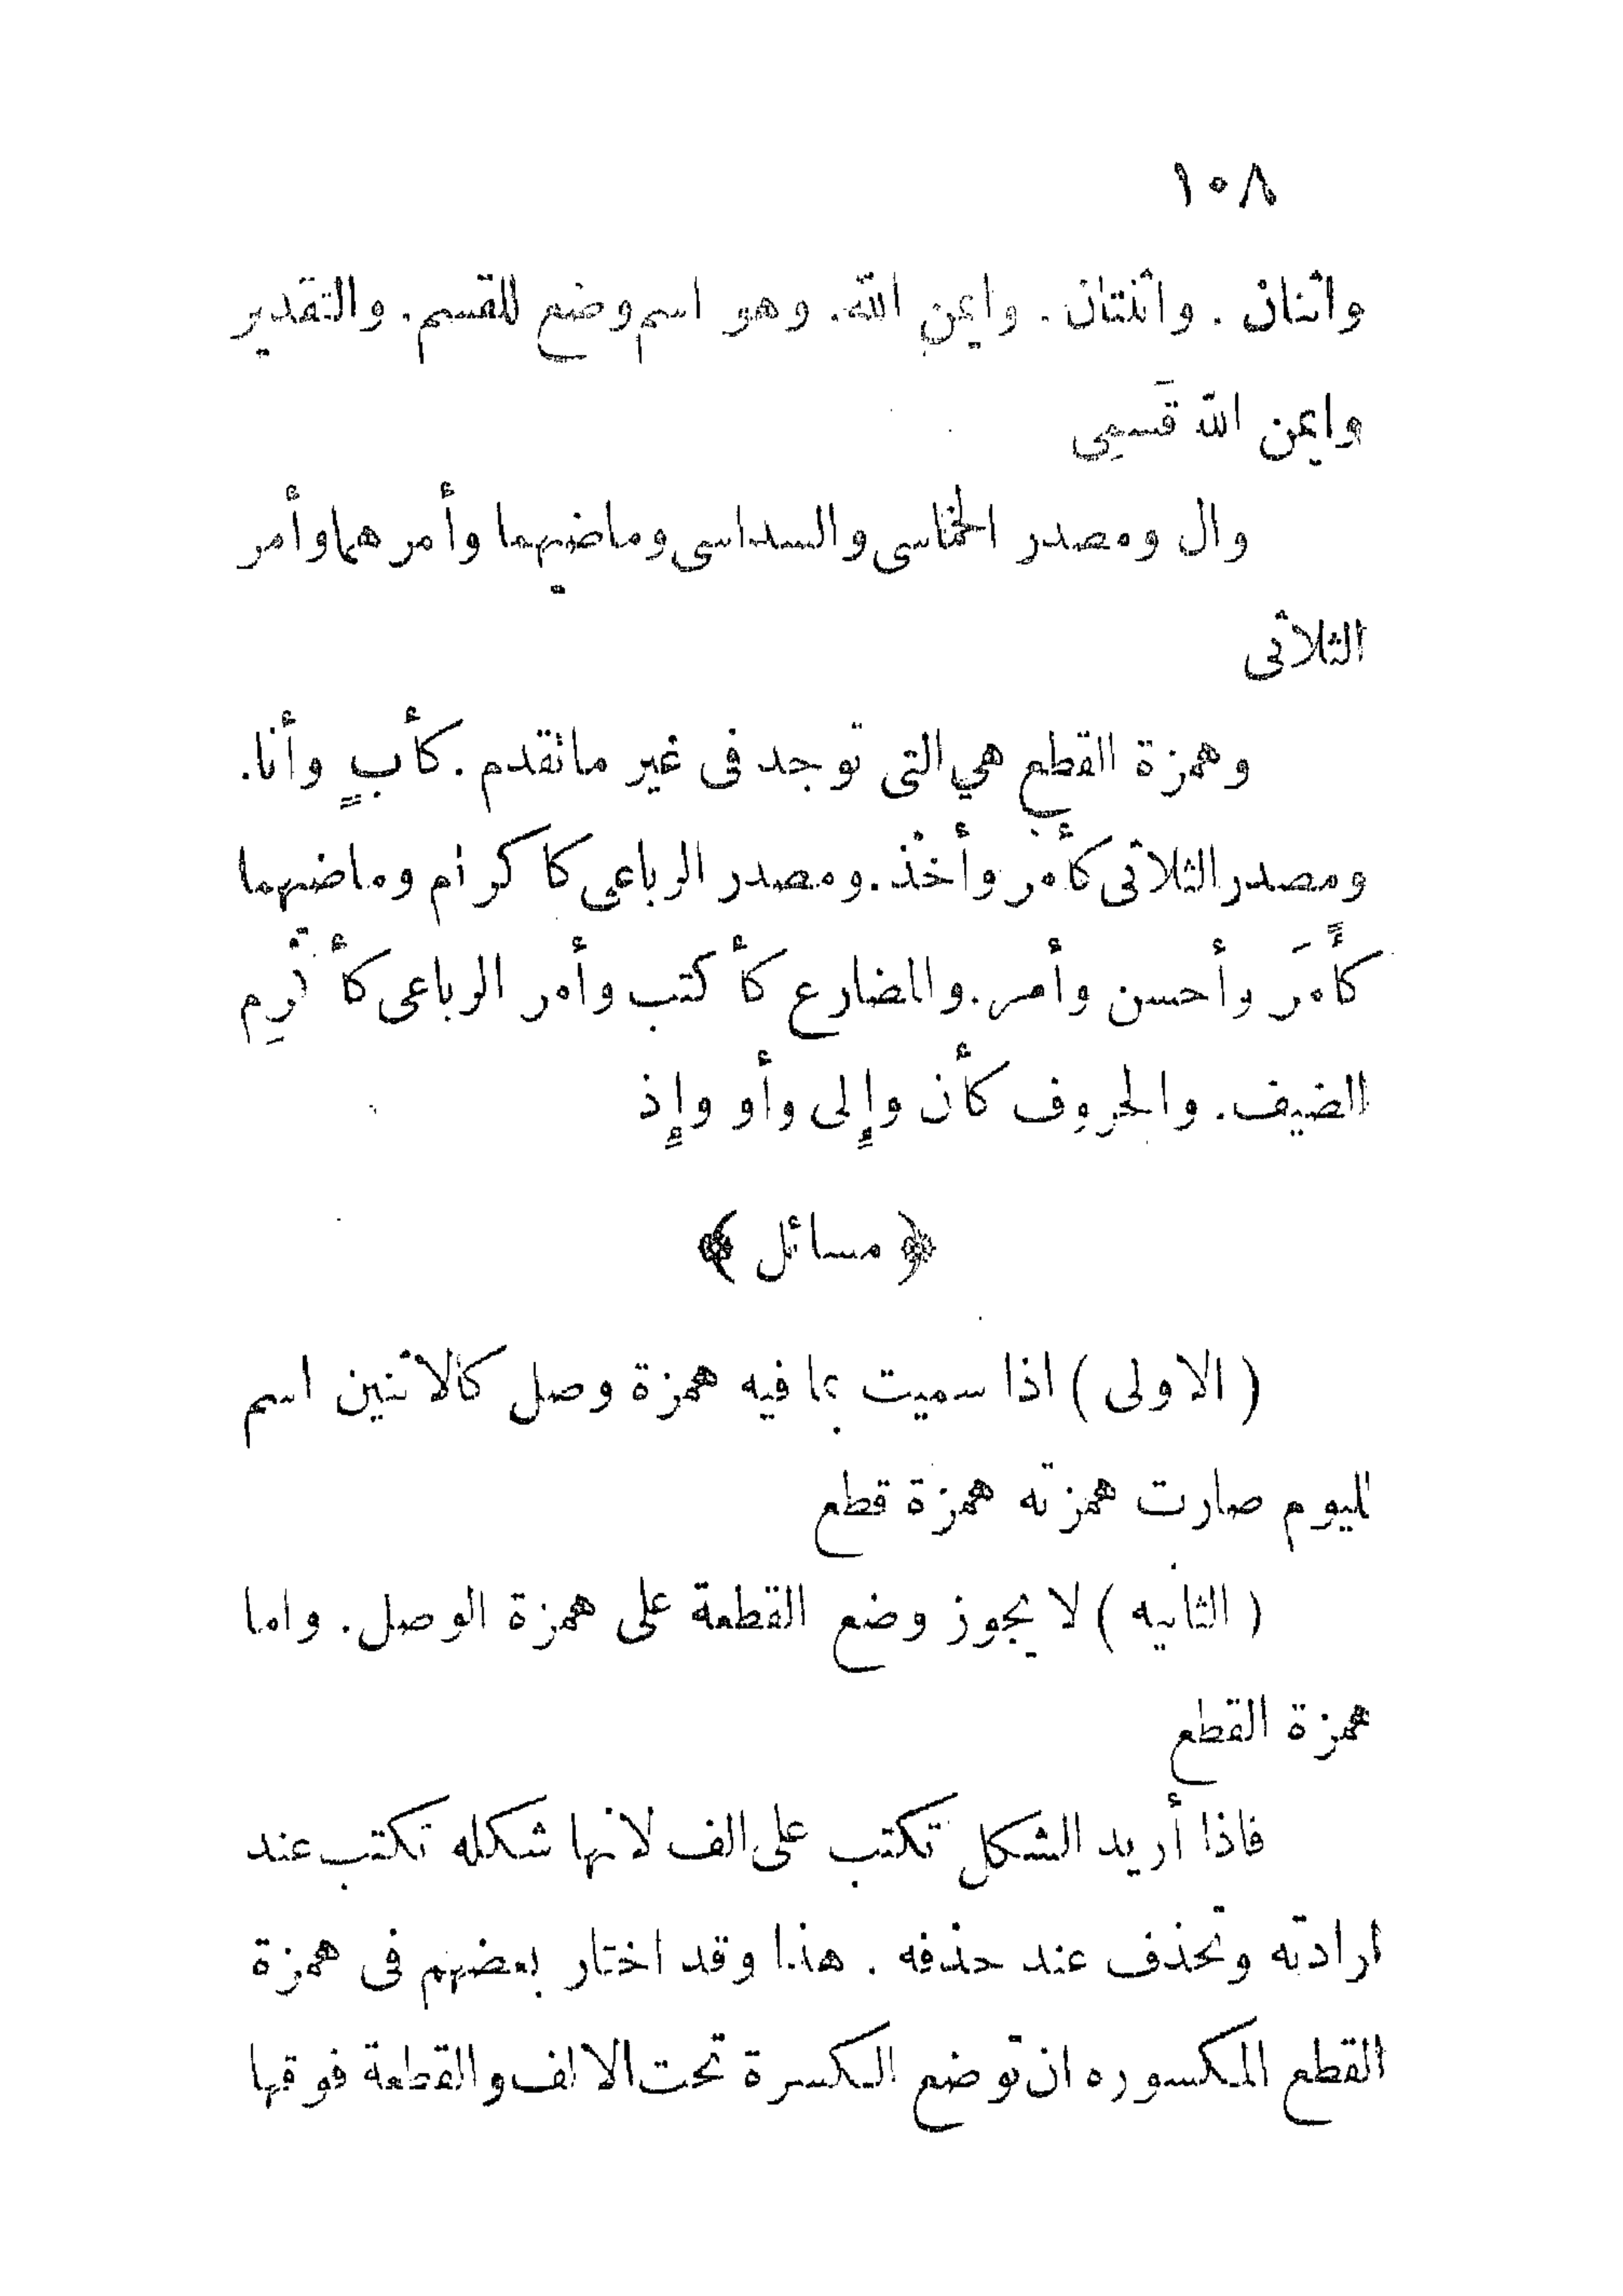 ١٠٨
واثنان . واثنتان . وايمن الله. وهو اسم وضع للقسم. والتقدير
وايمن الله قَسمِى
وال ومصدر الخماسى والسداسى وماضيهما وأمرهما وأمر
الثلاثى
وهمزة القطع هي التى توجد فى غير ماتقدم . كأبٍ وأنا.
ومصدر الثلاثى كأمر وأخْذ. ومصدر الرباعى كاكرام وماضيهما
كأَمَر وأحسن وأمر. والمضارع كأكتب وأمر الرباعى كأكْرِم
الضيف. والحروف كأن وإلى وأو وإذ
﴿ مسائل ﴾
( الاولى ) اذا سميت بما فيه همزة وصل كالاثنين اسم
لليوم صارت همزته همزة قطع
( الثانيه ) لا يجوز وضع القطعة على همزة الوصل. واما
همزة القطع
فاذا أريد الشكل تكتب على الف لانها شكله تكتب عند
ارادته وتحذف عند حذفه . هذا وقد اختار بعضهم فى همزة
القطع المكسوره ان توضع الكسرة تحت الالف والقطعة فوقها